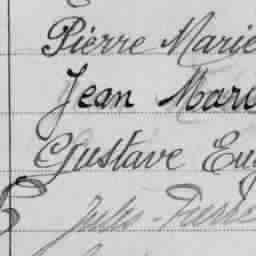 Pierre Marie
Jean Marc
Gustave Eug
Jules-Pierre